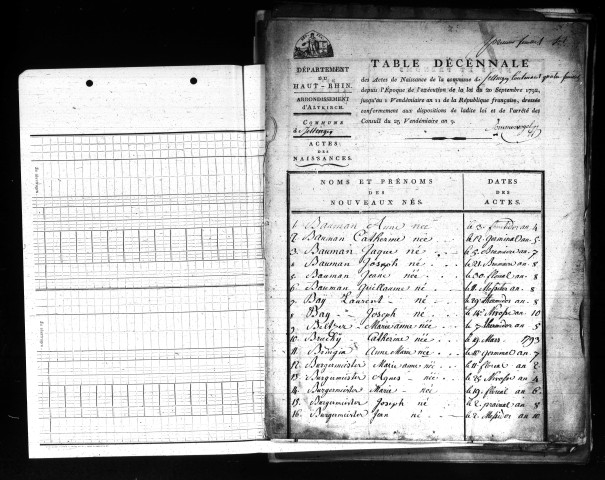 TABLE DÉCENNALE
des Actes de Naissance de la commune de
depuis l'Époque de l'exécution de la loi du 20 Septembre 1792,
jusqu'au 1 Vendémiaire an 11 de la République française, dressée
conformément aux dispositions de ladite loi et de l'arrêté des
Consuls du 25 Vendémiaire an 9.
DÉPARTEMENT
DU
HAUT-RHIN.
ARRONDISSEMENT
D'ALTKIRCH.
COMMUNE
de
ACTES
DES
NAISSANCES.
NOMS ET PRÉNOMS
DES
NOUVEAUX NÉS.
DATES
DES
ACTES.
1. Bauman Anne née le 3. fructidor an 4
2. Bauman Catherine née le 12. Germinal an 5
3. Bauman Jaque né le 5. Brumaire an 7
4. Bauman Joseph né le 21. Brumaire an 8
5. Bauman Jeanne née le 30. floreal an 8
6. Bauman Guillaume né le 11. Messidor an 8
7. Bay Laurent né le 29. thermidor an 8
8. Bay Joseph né le 18. Nivose an 10
9. Marie anne née le 7. thermidor an 5
10. Catherine née le 19. Mars 1793
11. Anne Marie née le 10. Germinal an 7
12. Burgermeister Marie anne née le 11. floreal an 2
13. Burgermeister Agnes née le 25. Nivose an 4
14. Burgermeister Marie née le 19. floreal an 6
15. Burgermeister Joseph né le 2. prairial an 8
16. Burgermeister Jean né le 2. Messidor an 10